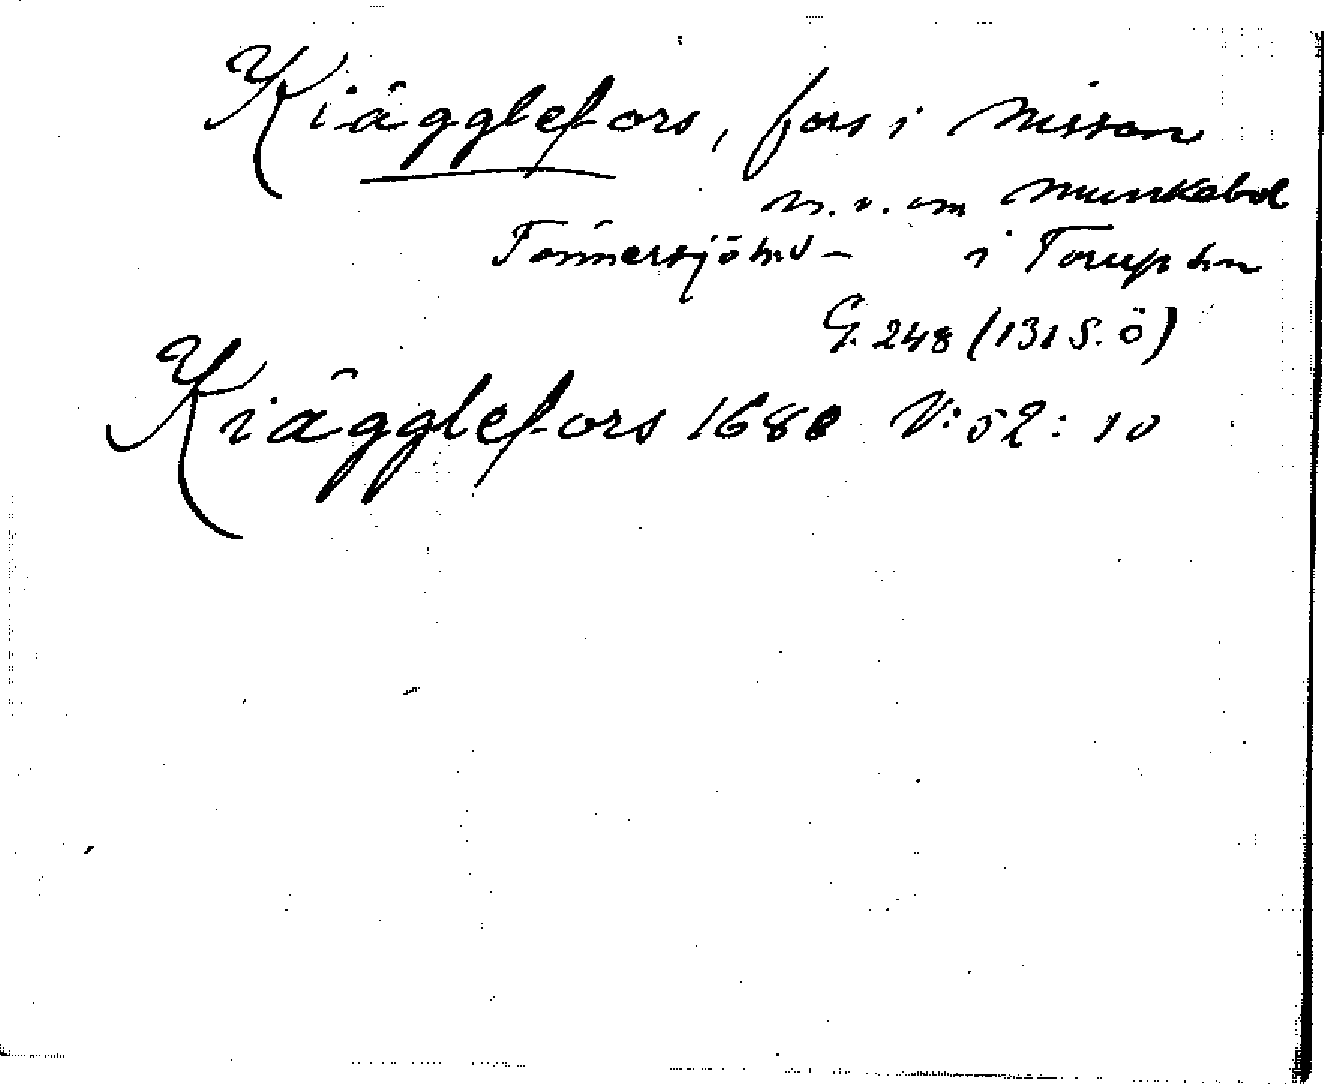 Kiägglefors, fors i Nissan
n.v. om Munkabol
Tönnersjö hd - i Torup sn
G. 248 (131 S. Ö)
Kiägglefors 1680 V:52:10